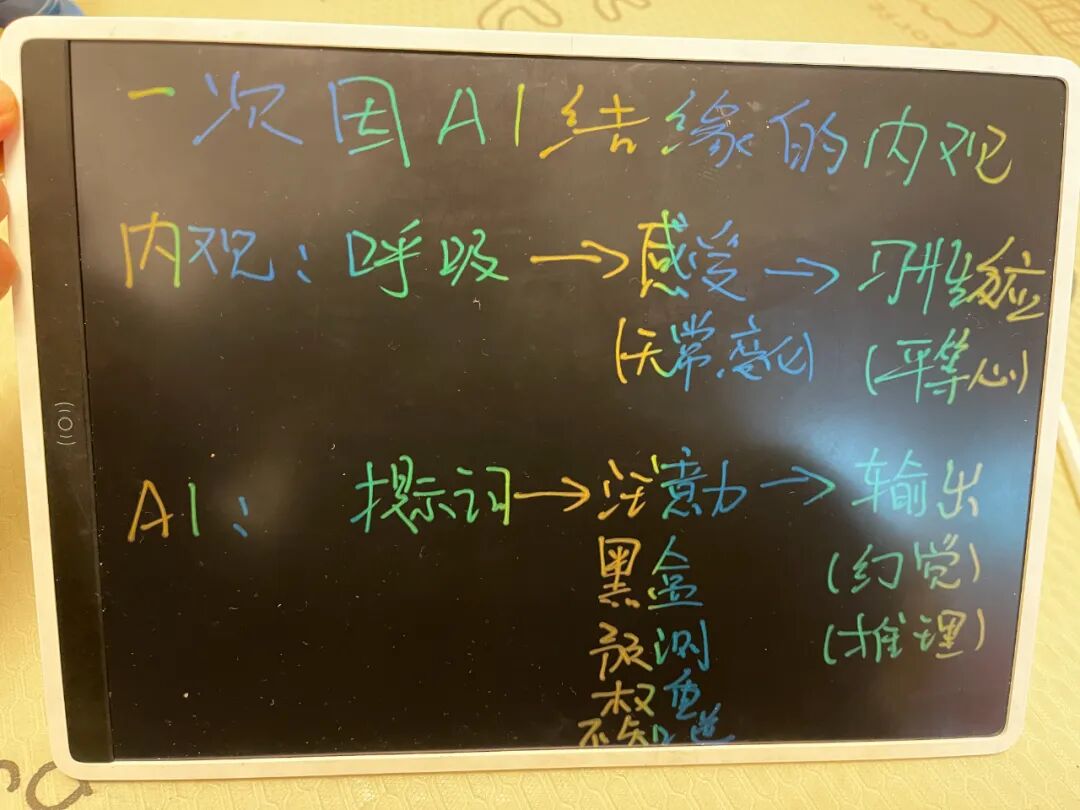 一次因AI结缘的内观
内观：呼吸→感受→习性反应
(无常,变化) (平等心)
AI： 提示词→注意力→输出
黑盒 (幻觉)
预测 (推理)
权重
不知道